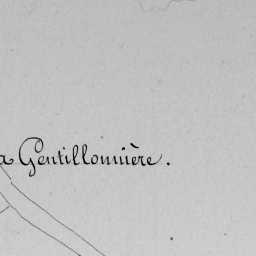 a Gentillonnière.